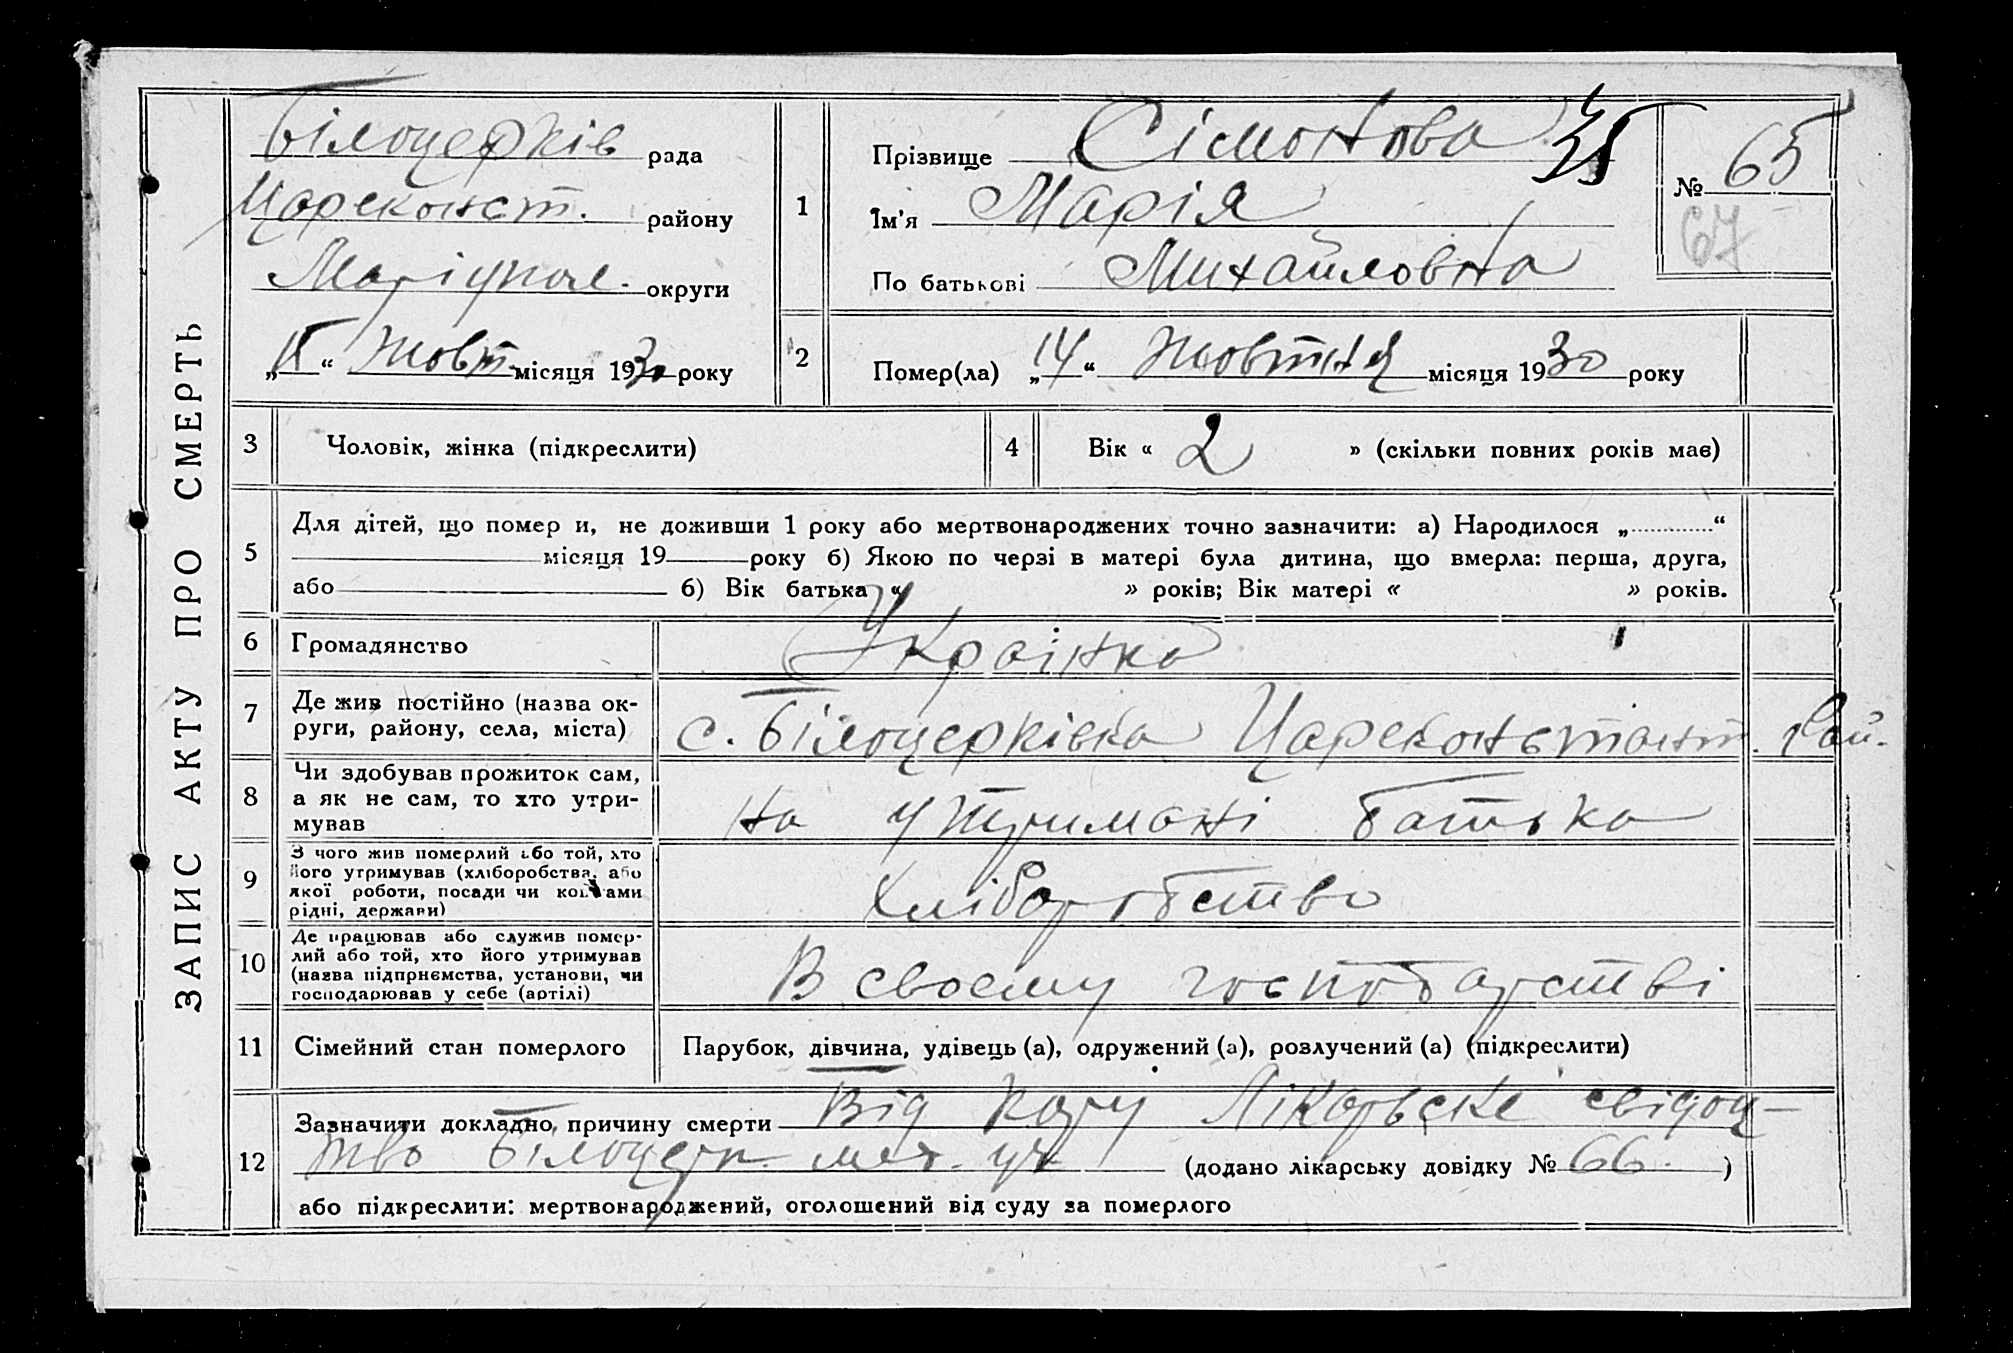 ЗАПИС АКТУ ПРО СМЕРТЬ
Білоцерків рада
Цареконст. району
Маріупол. округи
„ “ Жовт. місяця 1930 року
1
Прізвище Сімонова
Ім'я Марія
По батькові Михайловна
№ 65
67
2
Помер(ла) „14“ Жовтня місяця 1930 року
3 Чоловік, жінка (підкреслити)
4 Вік « 2 » (скільки повних років має)
5
Для дітей, що помер и, не доживши 1 року або мертвонароджених точно зазначити: а) Народилося „ “
місяця 19 року б) Якою по черзі в матері була дитина, що вмерла: перша, друга,
або б) Вік батька « » років; Вік матері « » років.
6 Громадянство Українка
7 Де жив постійно (назва ок-
руги, району, села, міста)
с. Білоцерківка Цареконстант. Рай.
8 Чи здобував прожиток сам,
а як не сам, то хто утри-
мував
на утримані батька
9 З чого жив померлий або той, хто
його утримував (хліборобства, або
якої роботи, посади чи коштами
рідні, держави)
хліборобство
10 Де працював або служив помер-
лий або той, хто його утримував
(назва підприємства, установи, чи
господарював у себе (артілі)
В своєму господарстві
11 Сімейний стан померлого
Парубок, дівчина, удівець (а), одружений (а), розлучений (а) (підкреслити)
12
Зазначити докладно причину смерти Від кору Лікарьске свідоц-
тво Білоцерк. мед. уч (додано лікарську довідку № 66. )
або підкреслити: мертвонароджений, оголошений від суду за померлого